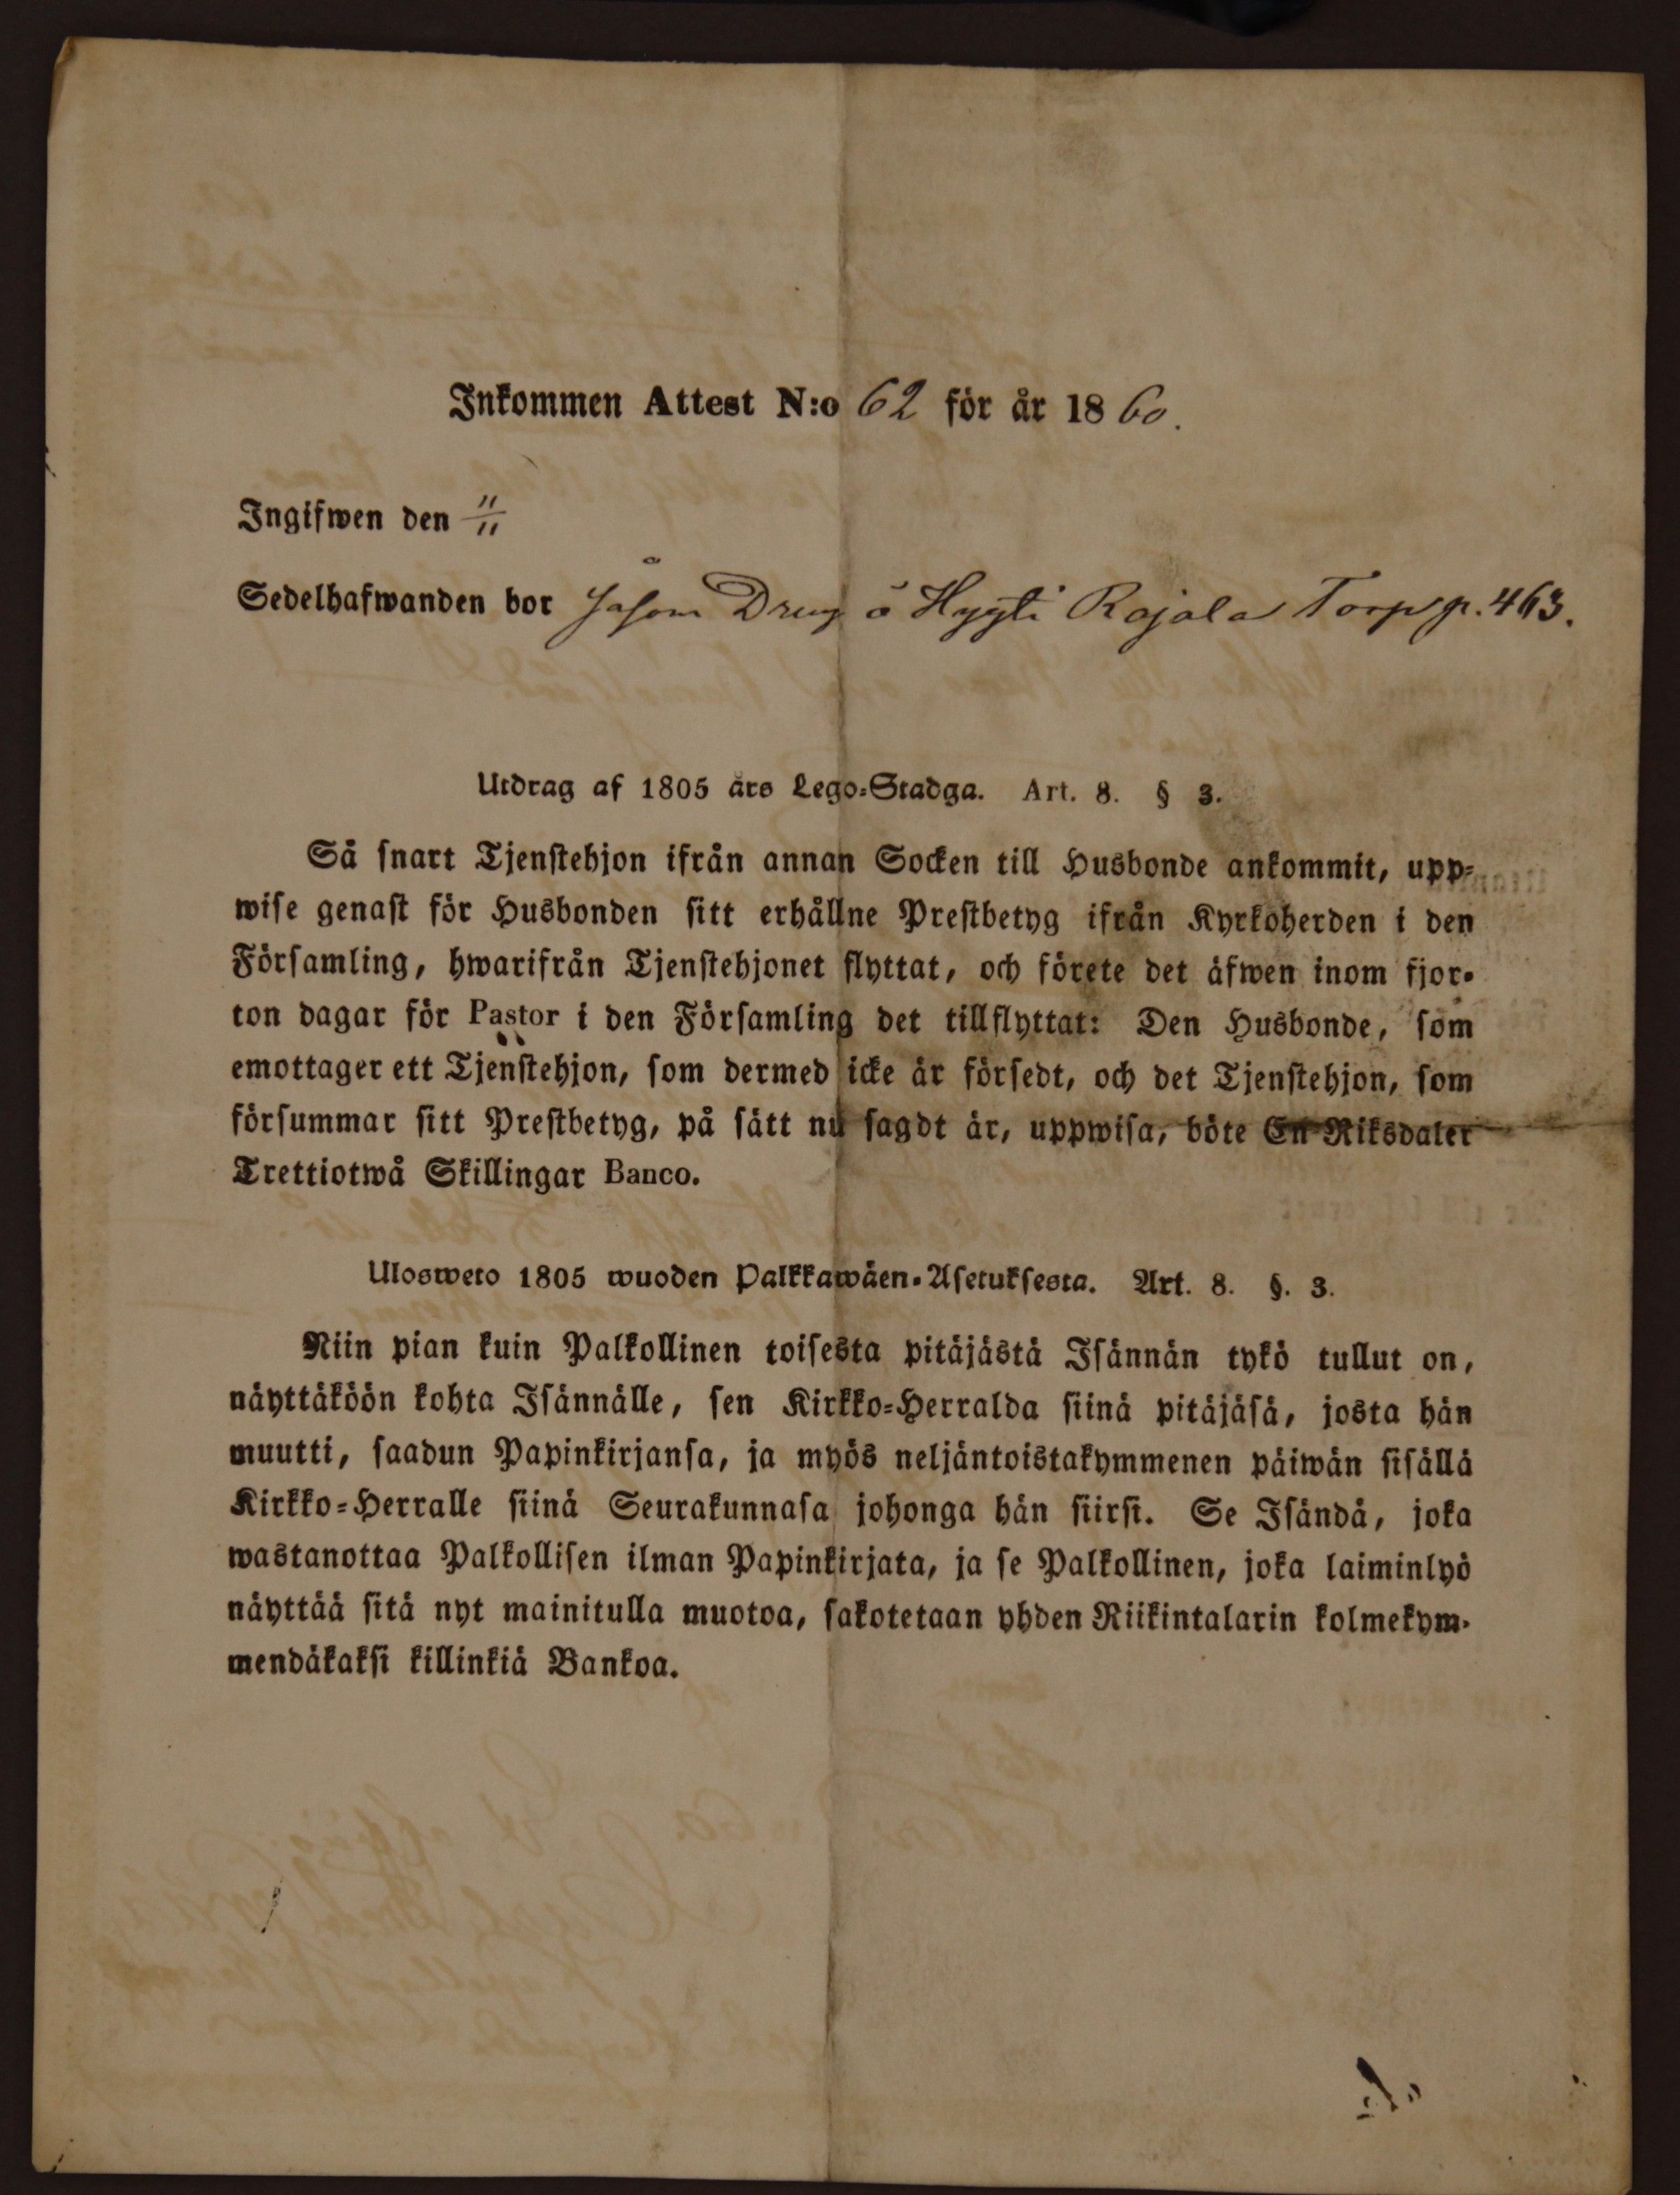 Inkommen Attest N:o 62 för år 1860.
Ingifwen den 11/11
Sedelhafwanden bor såsom Dreng å Hyyti Rajala Torp p. 463.
Utdrag af 1805 års Lego=Stadga. Art. 8. § 3.
Så snart Tjenstehjon ifrån annan Socken till Husbonde ankommit, upp=
wise genast för Husbonden sitt erhållne Prestbetyg ifrån Kyrkoherden i den
Församling, hwarifrån Tjenstehjonet flyttat, och förete det äfwen inom fjor=
ton dagar för Pastor i den Församling det tillflyttat: Den Husbonde, som
emottager ett Tjenstehjon, som dermed icke är försedt, och det Tjenstehjon, som
försummar sitt Prestbetyg, på sätt nu sagdt är, uppwisa, böte En Riksdaler
Trettiotwå Skillingar Banco.
Ulosweto 1805 wuoden Palkkawäen=Asetuksesta. Art. 8. §. 3.
Niin pian kuin Palkollinen toisesta pitäjästä Isännän tykö tullut on,
näyttäköön kohta Isännälle, sen Kirkko=Herralda siinä pitäjäsä, josta hän
muutti, saadun Papinkirjansa, ja myös neljäntoistakymmenen päiwän sisällä
Kirkko=Herralle siinä Seurakunnasa johonga hän siirsi. Se Isändä, joka
wastanottaa Palkollisen ilman Papinkirjata, ja se Palkollinen, joka laiminlyö
näyttää sitä nyt mainitulla muotoa, sakotetaan yhden Riikintalarin kolmekym=
mendäkaksi killinkiä Bankoa.